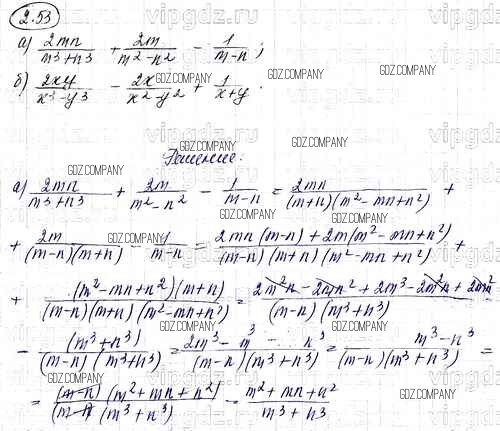 2.53
а) 2mn/(m³+n³) + 2m/(m²-n²) - 1/(m-n) ;
б) 2xy/(x³-y³) - 2x/(x²-y²) + 1/(x+y) .
Решение:
а) 2mn/(m³+n³) + 2m/(m²-n²) - 1/(m-n) = 2mn/((m+n)(m²-mn+n²)) +
+ 2m/((m-n)(m+n)) - 1/(m-n) = (2mn(m-n)+2m(m²-mn+n²))/((m-n)(m+n)(m²-mn+n²)) +
+ ((m²-mn+n²)(m+n))/((m-n)(m+n)(m²-mn+n²)) = (2m²n-2mn²+2m³-2m²n+2mn²)/((m-n)(m³+n³))
- (m³+n³)/((m-n)(m³+n³)) = (2m³-m³-n³)/((m-n)(m³+n³)) = (m³-n³)/((m-n)(m³+n³)) =
= ((m-n)(m²+mn+n²))/((m-n)(m³+n³)) = (m²+mn+n²)/(m³+n³)
vipgdz.ru
GDZ.COMPANY